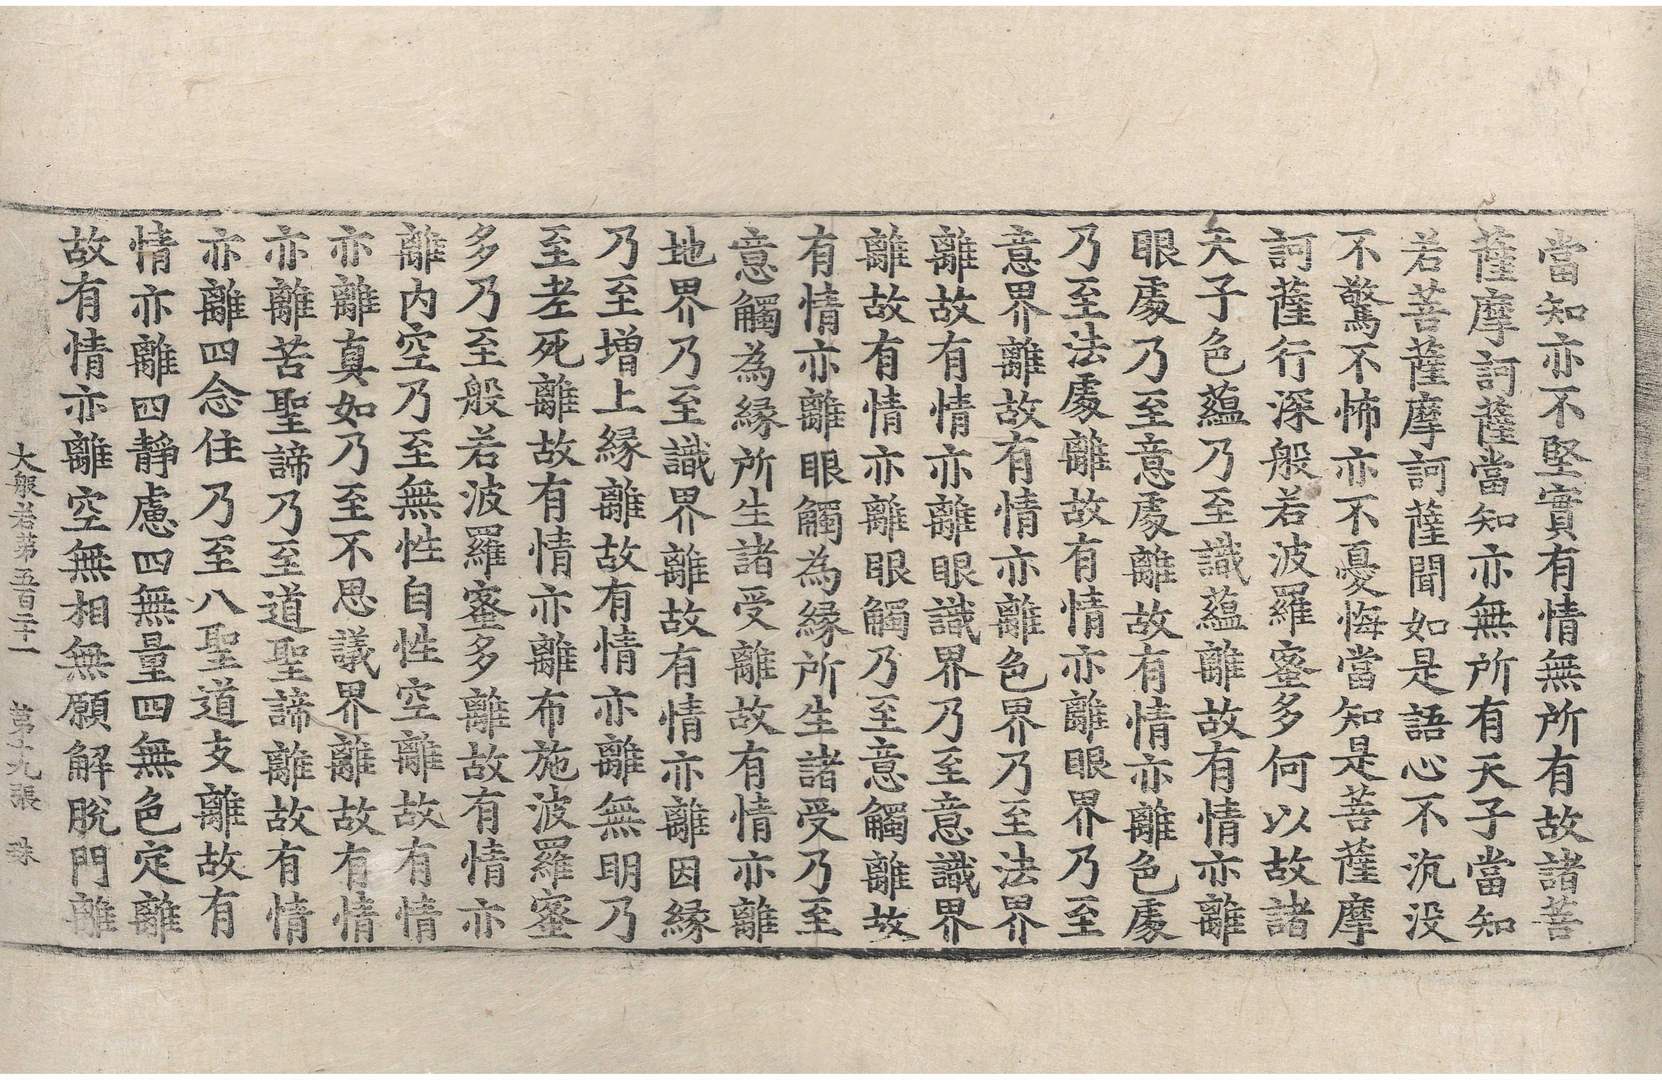 當知亦不堅實有情無所有故諸菩
薩摩訶薩當知亦無所有天子當知
若菩薩摩訶薩聞如是語心不沉没
不驚不怖亦不憂悔當知是菩薩摩
訶薩行深般若波羅蜜多何以故諸
天子色蘊乃至識蘊離故有情亦離
眼處乃至意處離故有情亦離色處
乃至法處離故有情亦離眼界乃至
意界離故有情亦離色界乃至法界
離故有情亦離眼識界乃至意識界
離故有情亦離眼觸乃至意觸離故
有情亦離眼觸為緣所生諸受乃至
意觸為緣所生諸受離故有情亦離
地界乃至識界離故有情亦離因緣
乃至增上緣離故有情亦離無明乃
至老死離故有情亦離布施波羅蜜
多乃至般若波羅蜜多離故有情亦
離內空乃至無性自性空離故有情
亦離真如乃至不思議界離故有情
亦離苦聖諦乃至道聖諦離故有情
亦離四念住乃至八聖道支離故有
情亦離四靜慮四無量四無色定離
故有情亦離空無相無願解脫門離
大般若第五百二十一 第十九張 珠